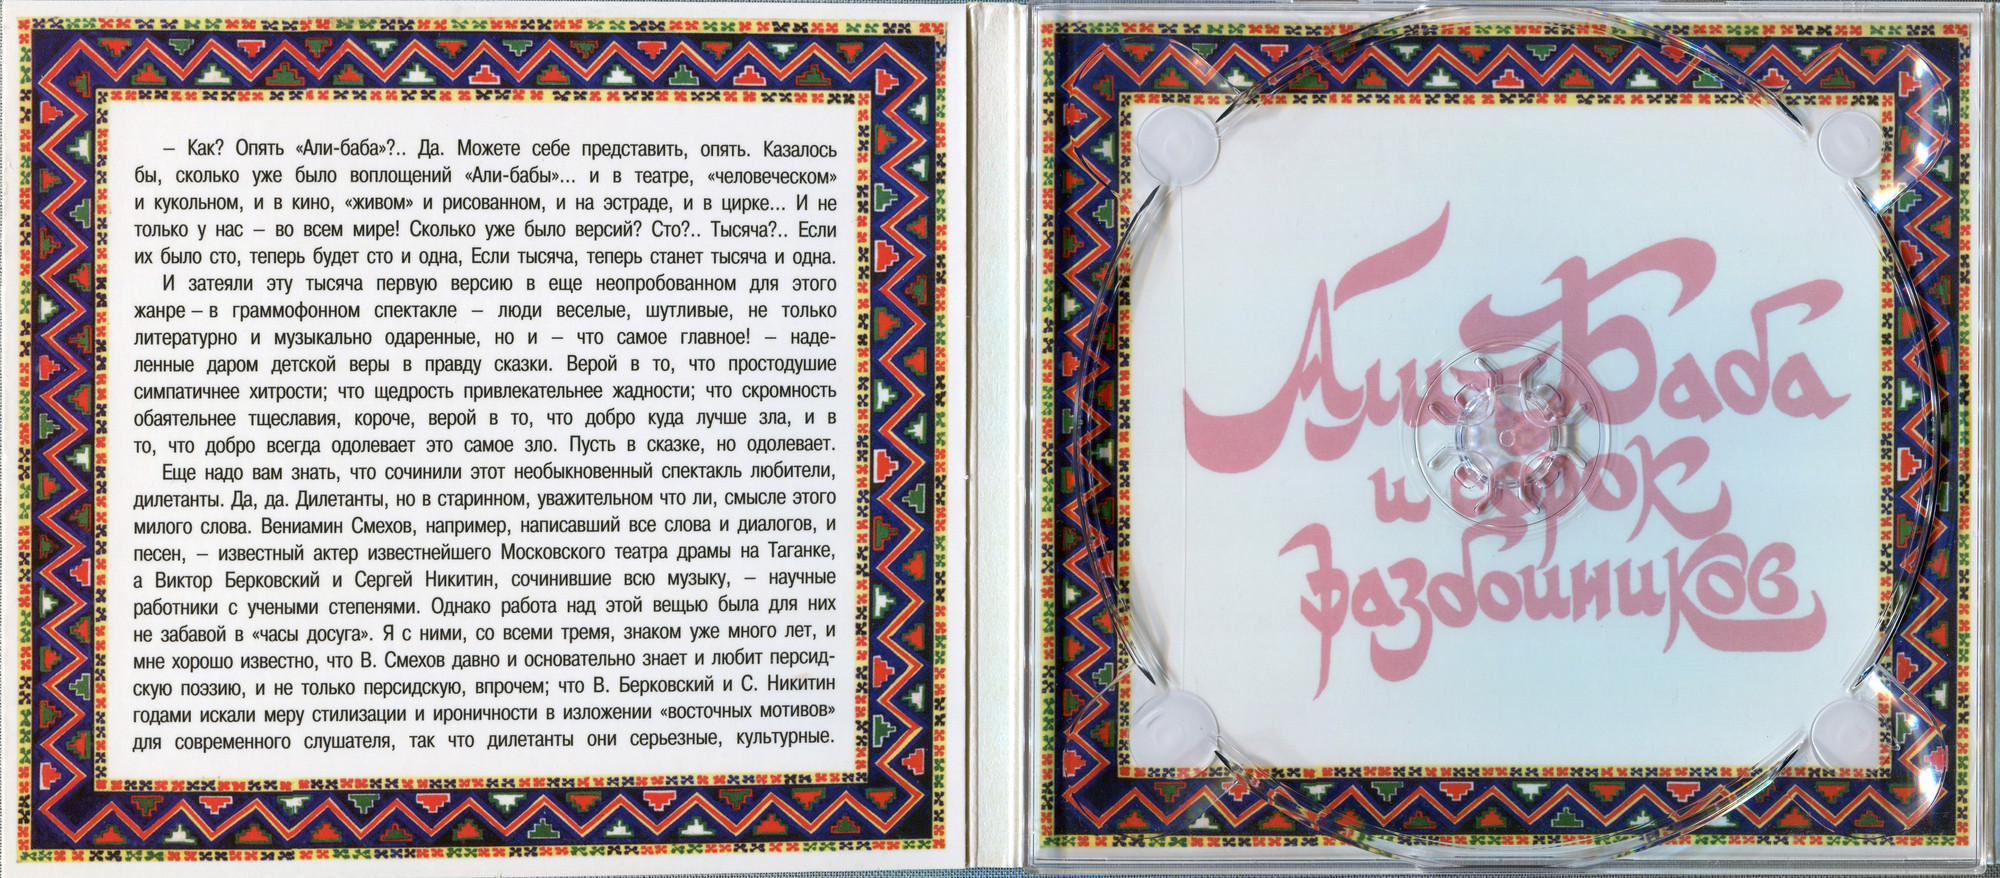 – Как? Опять «Али-баба»?.. Да. Можете себе представить, опять. Казалось
бы, сколько уже было воплощений «Али-бабы»... и в театре, «человеческом»
и кукольном, и в кино, «живом» и рисованном, и на эстраде, и в цирке... И не
только у нас – во всем мире! Сколько уже было версий? Сто?.. Тысяча?.. Если
их было сто, теперь будет сто и одна, Если тысяча, теперь станет тысяча и одна.
И затеяли эту тысяча первую версию в еще неопробованном для этого
жанре – в граммофонном спектакле – люди веселые, шутливые, не только
литературно и музыкально одаренные, но и – что самое главное! – наде-
ленные даром детской веры в правду сказки. Верой в то, что простодушие
симпатичнее хитрости; что щедрость привлекательнее жадности; что скромность
обаятельнее тщеславия, короче, верой в то, что добро куда лучше зла, и в
то, что добро всегда одолевает это самое зло. Пусть в сказке, но одолевает.
Еще надо вам знать, что сочинили этот необыкновенный спектакль любители,
дилетанты. Да, да. Дилетанты, но в старинном, уважительном что ли, смысле этого
милого слова. Вениамин Смехов, например, написавший все слова и диалогов, и
песен, – известный актер известнейшего Московского театра драмы на Таганке,
а Виктор Берковский и Сергей Никитин, сочинившие всю музыку, – научные
работники с учеными степенями. Однако работа над этой вещью была для них
не забавой в «часы досуга». Я с ними, со всеми тремя, знаком уже много лет, и
мне хорошо известно, что В. Смехов давно и основательно знает и любит персид-
скую поэзию, и не только персидскую, впрочем; что В. Берковский и С. Никитин
годами искали меру стилизации и ироничности в изложении «восточных мотивов»
для современного слушателя, так что дилетанты они серьезные, культурные.
Али-Баба
и сорок
разбойников